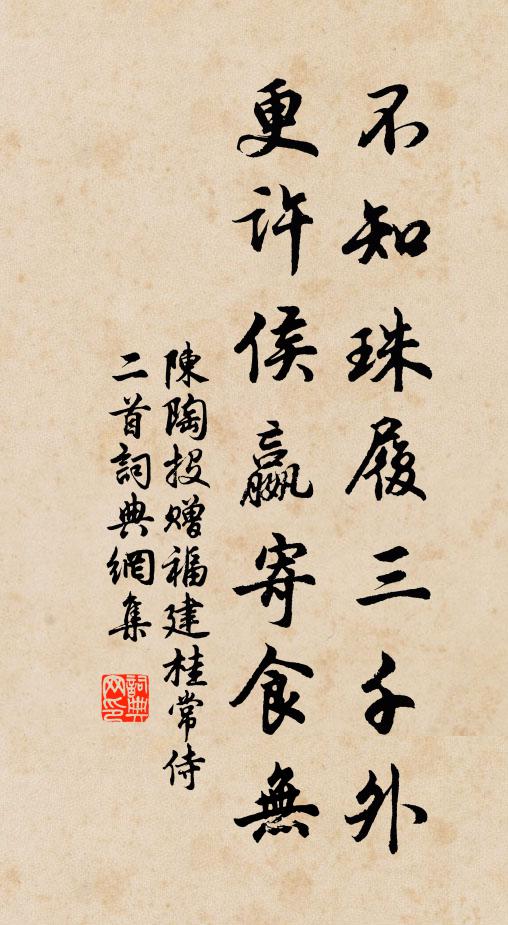 不知珠履三千外
更許侯嬴寄食無
陳陶投贈福建桂常侍
二首詞典網集
詞典
网印